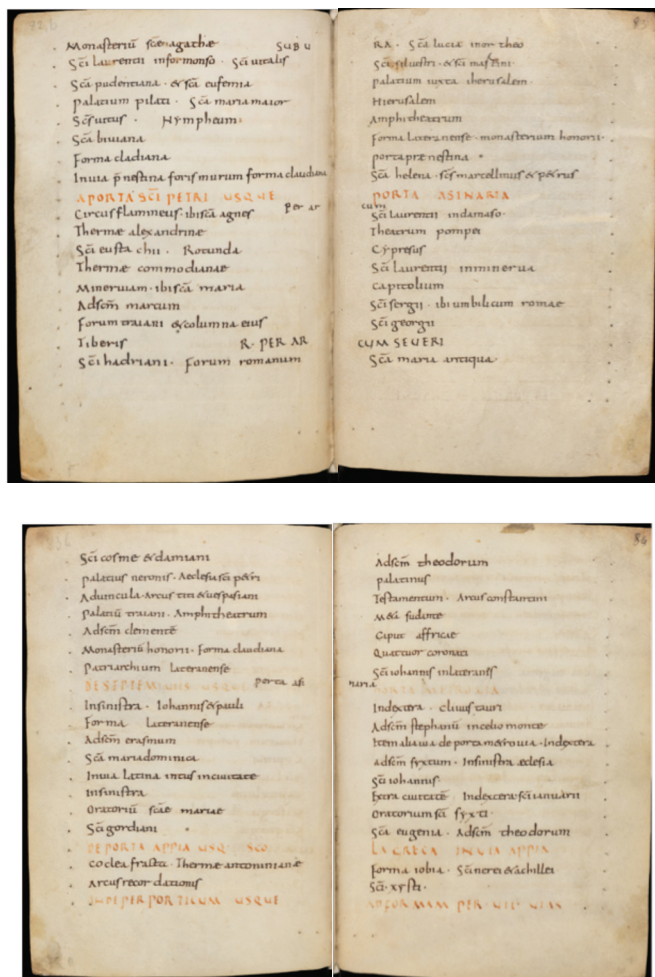 82b
Monasteriū scæ agathæ SUBU
Sc̄i laurentii informonso · Sc̄i uitalis
Sc̄a pudentiana · & sc̄a eufemia
palatium pilati · Sc̄a maria maior
Sc̄s uitus · Nympheum·
Sc̄a biuiana
Forma claudiana
Inuia p̄nestina foris murum forma claudiana
A PORTA SC̄I PETRI USQUE
Per ar
Circus flamineus · ibi sc̄a agnes
Thermæ alexandrinæ
Sc̄i eustachii · Rotunda
Thermæ commodianæ
Mineruiam · ibi sc̄a maria
Ad sc̄m marcum
Forum traiani & columna eius
Tiberis R· PER AR
Sc̄i hadriani · Forum romanum
RA · Sc̄a lucia in ortheo
Sc̄i siluestri · & sc̄i martini·
palatium iuxta iherusalem·
Hierusalem
Amphitheatrum
Forma Lateranense · monasterium honorii·
porta prænestina
Sc̄a helena · sc̄s marcellinus & petrus
PORTA ASINARIA
cum
Sc̄i Laurentii in damaso·
Theatrum pompei
Cypresus
Sc̄i Laurentii in minerua
Capitolium
Sc̄i sergii · ibi umbilicum romae
Sc̄i georgii
CUM SEUERI
Sc̄a maria antiqua·
Sc̄i cosme & damiani
palatius neronis · Aeclesia sc̄i petri
Ad uincula · Arcus titi & uespasiani
Palatiū traiani · Amphitheatrum
Ad sc̄m clementē
Monasteriū honorii · Forma claudiana
Patriarchium Lateranense
DE SEPTEM USQUE
Porta asi
In sinistra · Iohannis & pauli
Forma Lateranense
Ad sc̄m erasmum
Sc̄a maria dominica
In uia Latina intus in ciuitate
In sinistra
Oratoriū scāe mariae
Sc̄i gordiani
DE PORTA APPIA USQ· SCO
Coclea fracta · Thermæ antoninianæ
Arcus recordationis
INDE PER PORTICUM USQUE
86
Ad sc̄m theodorum
palatinus
Testamentum · Arcus constantini
Meta fudante
Caput affricae
Quattuor coronati
Sc̄i iohannis in lateranis
naria
PORTA METROUIA
In dextera · cliuus tauri
Ad sc̄m stephanū in celio monte
Item alia uia de porta metrouia · In dextera
ad sc̄m syxtum · In sinistra æclesia
Sc̄i iohannis
Extra ciuitatē In dextera sc̄i ianuarii
Oratorium sc̄i syxti·
Sc̄a eugenia · Ad sc̄m theodorum
LA GRECA IN UIA APPIA
Forma iobia · Sc̄i nerei & achillei
Sc̄i · xysti·
AD FORMAM PER